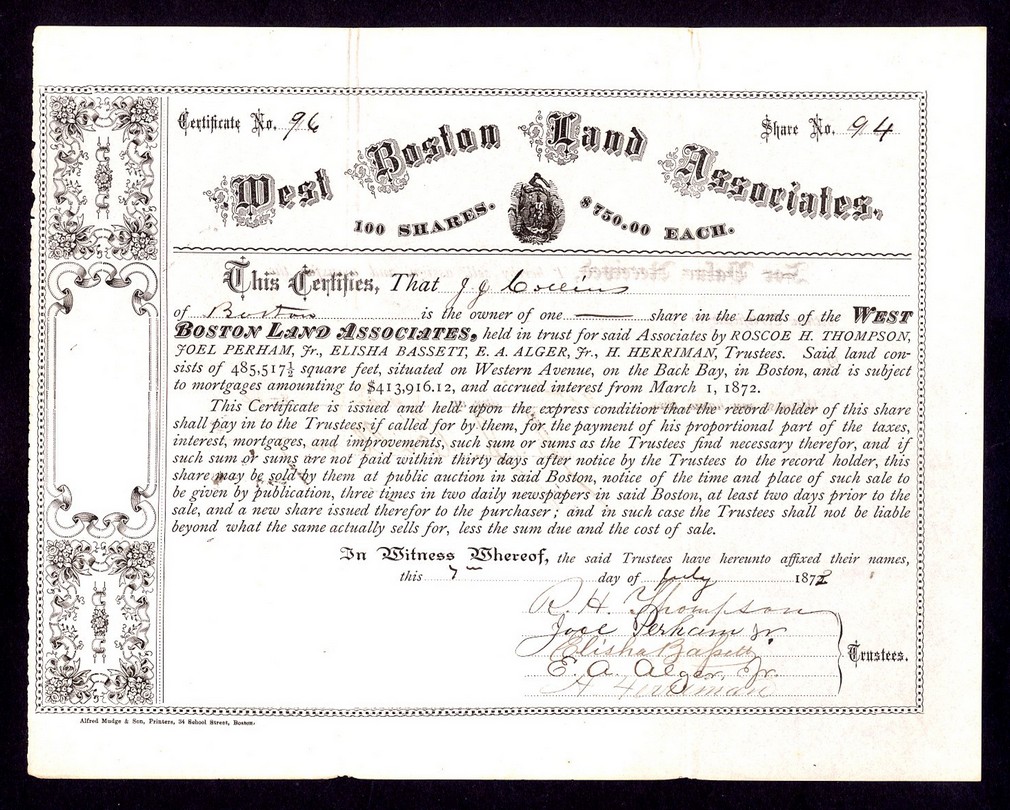 Certificate No. 96
Share No. 94
West Boston Land Associates.
100 SHARES. $750.00 EACH.
This Certifies, That J J Collins
of Boston is the owner of one share in the Lands of the WEST
BOSTON LAND ASSOCIATES, held in trust for said Associates by ROSCOE H. THOMPSON,
JOEL PERHAM, Jr., ELISHA BASSETT, E. A. ALGER, Jr., H. HERRIMAN, Trustees. Said land con-
sists of 485,517½ square feet, situated on Western Avenue, on the Back Bay, in Boston, and is subject
to mortgages amounting to $413,916.12, and accrued interest from March 1, 1872.
This Certificate is issued and held upon the express condition that the record holder of this share
shall pay in to the Trustees, if called for by them, for the payment of his proportional part of the taxes,
interest, mortgages, and improvements, such sum or sums as the Trustees find necessary therefor, and if
such sum or sums are not paid within thirty days after notice by the Trustees to the record holder, this
share may be sold by them at public auction in said Boston, notice of the time and place of such sale to
be given by publication, three times in two daily newspapers in said Boston, at least two days prior to the
sale, and a new share issued therefor to the purchaser; and in such case the Trustees shall not be liable
beyond what the same actually sells for, less the sum due and the cost of sale.
In Witness Whereof, the said Trustees have hereunto affixed their names,
this 7th day of July 187
R. H. Thompson
Joel Perham Jr
Elisha Bassett
E. A. Alger, Jr.
H Herriman
Trustees.
Alfred Mudge & Son, Printers, 34 School Street, Boston.